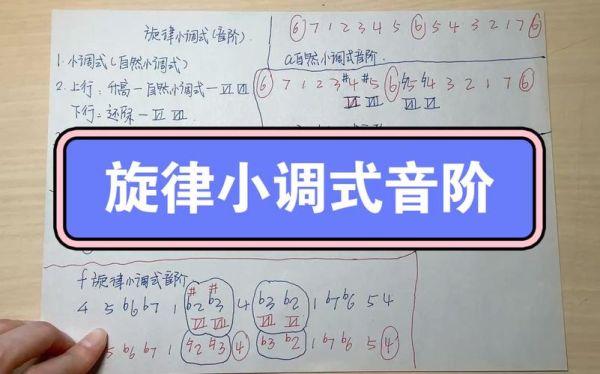 旋律小调式(音阶).
1.小调式(自然小调式)
2.上行:升高—自然小调式—Ⅵ Ⅶ
下行:还原—Ⅵ Ⅶ
6 7 1 2 3 4 5 6 5 4 3 2 1 7 6
a自然小调式音阶.
6 7 1 2 3 #4 #5 6 ♮5 ♮4 3 2 1 7 6
Ⅵ Ⅶ Ⅶ Ⅵ
旋律小调式音阶
f旋律小调式音阶
4 5 b6 b7 1 #b2 #b3 4 b3 b2 1 b7 b6 5 4
Ⅵ Ⅶ Ⅶ Ⅵ
5 b6 b7 1 ♮2 ♮3 4 b3 b2 1 b7 b6 5 4